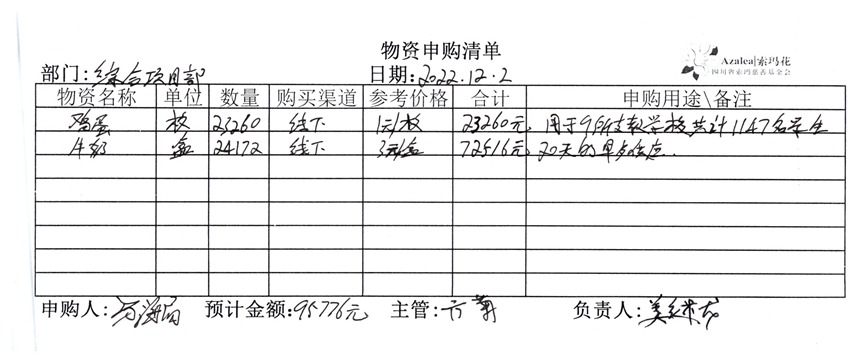 物资申购清单
Azalea|索玛花
四川省索玛慈善基金会
部门:综合项目部 日期:2022.12.2
物资名称 单位 数量 购买渠道 参考价格 合计 申购用途\备注
鸡蛋 枚 23260 线下 1元/枚 23260元 用于9所支教学校共计1147名学生
牛奶 盒 24172 线下 3元/盒 72516元 20天的早点供应.
申购人: 预计金额:95776元 主管: 负责人: